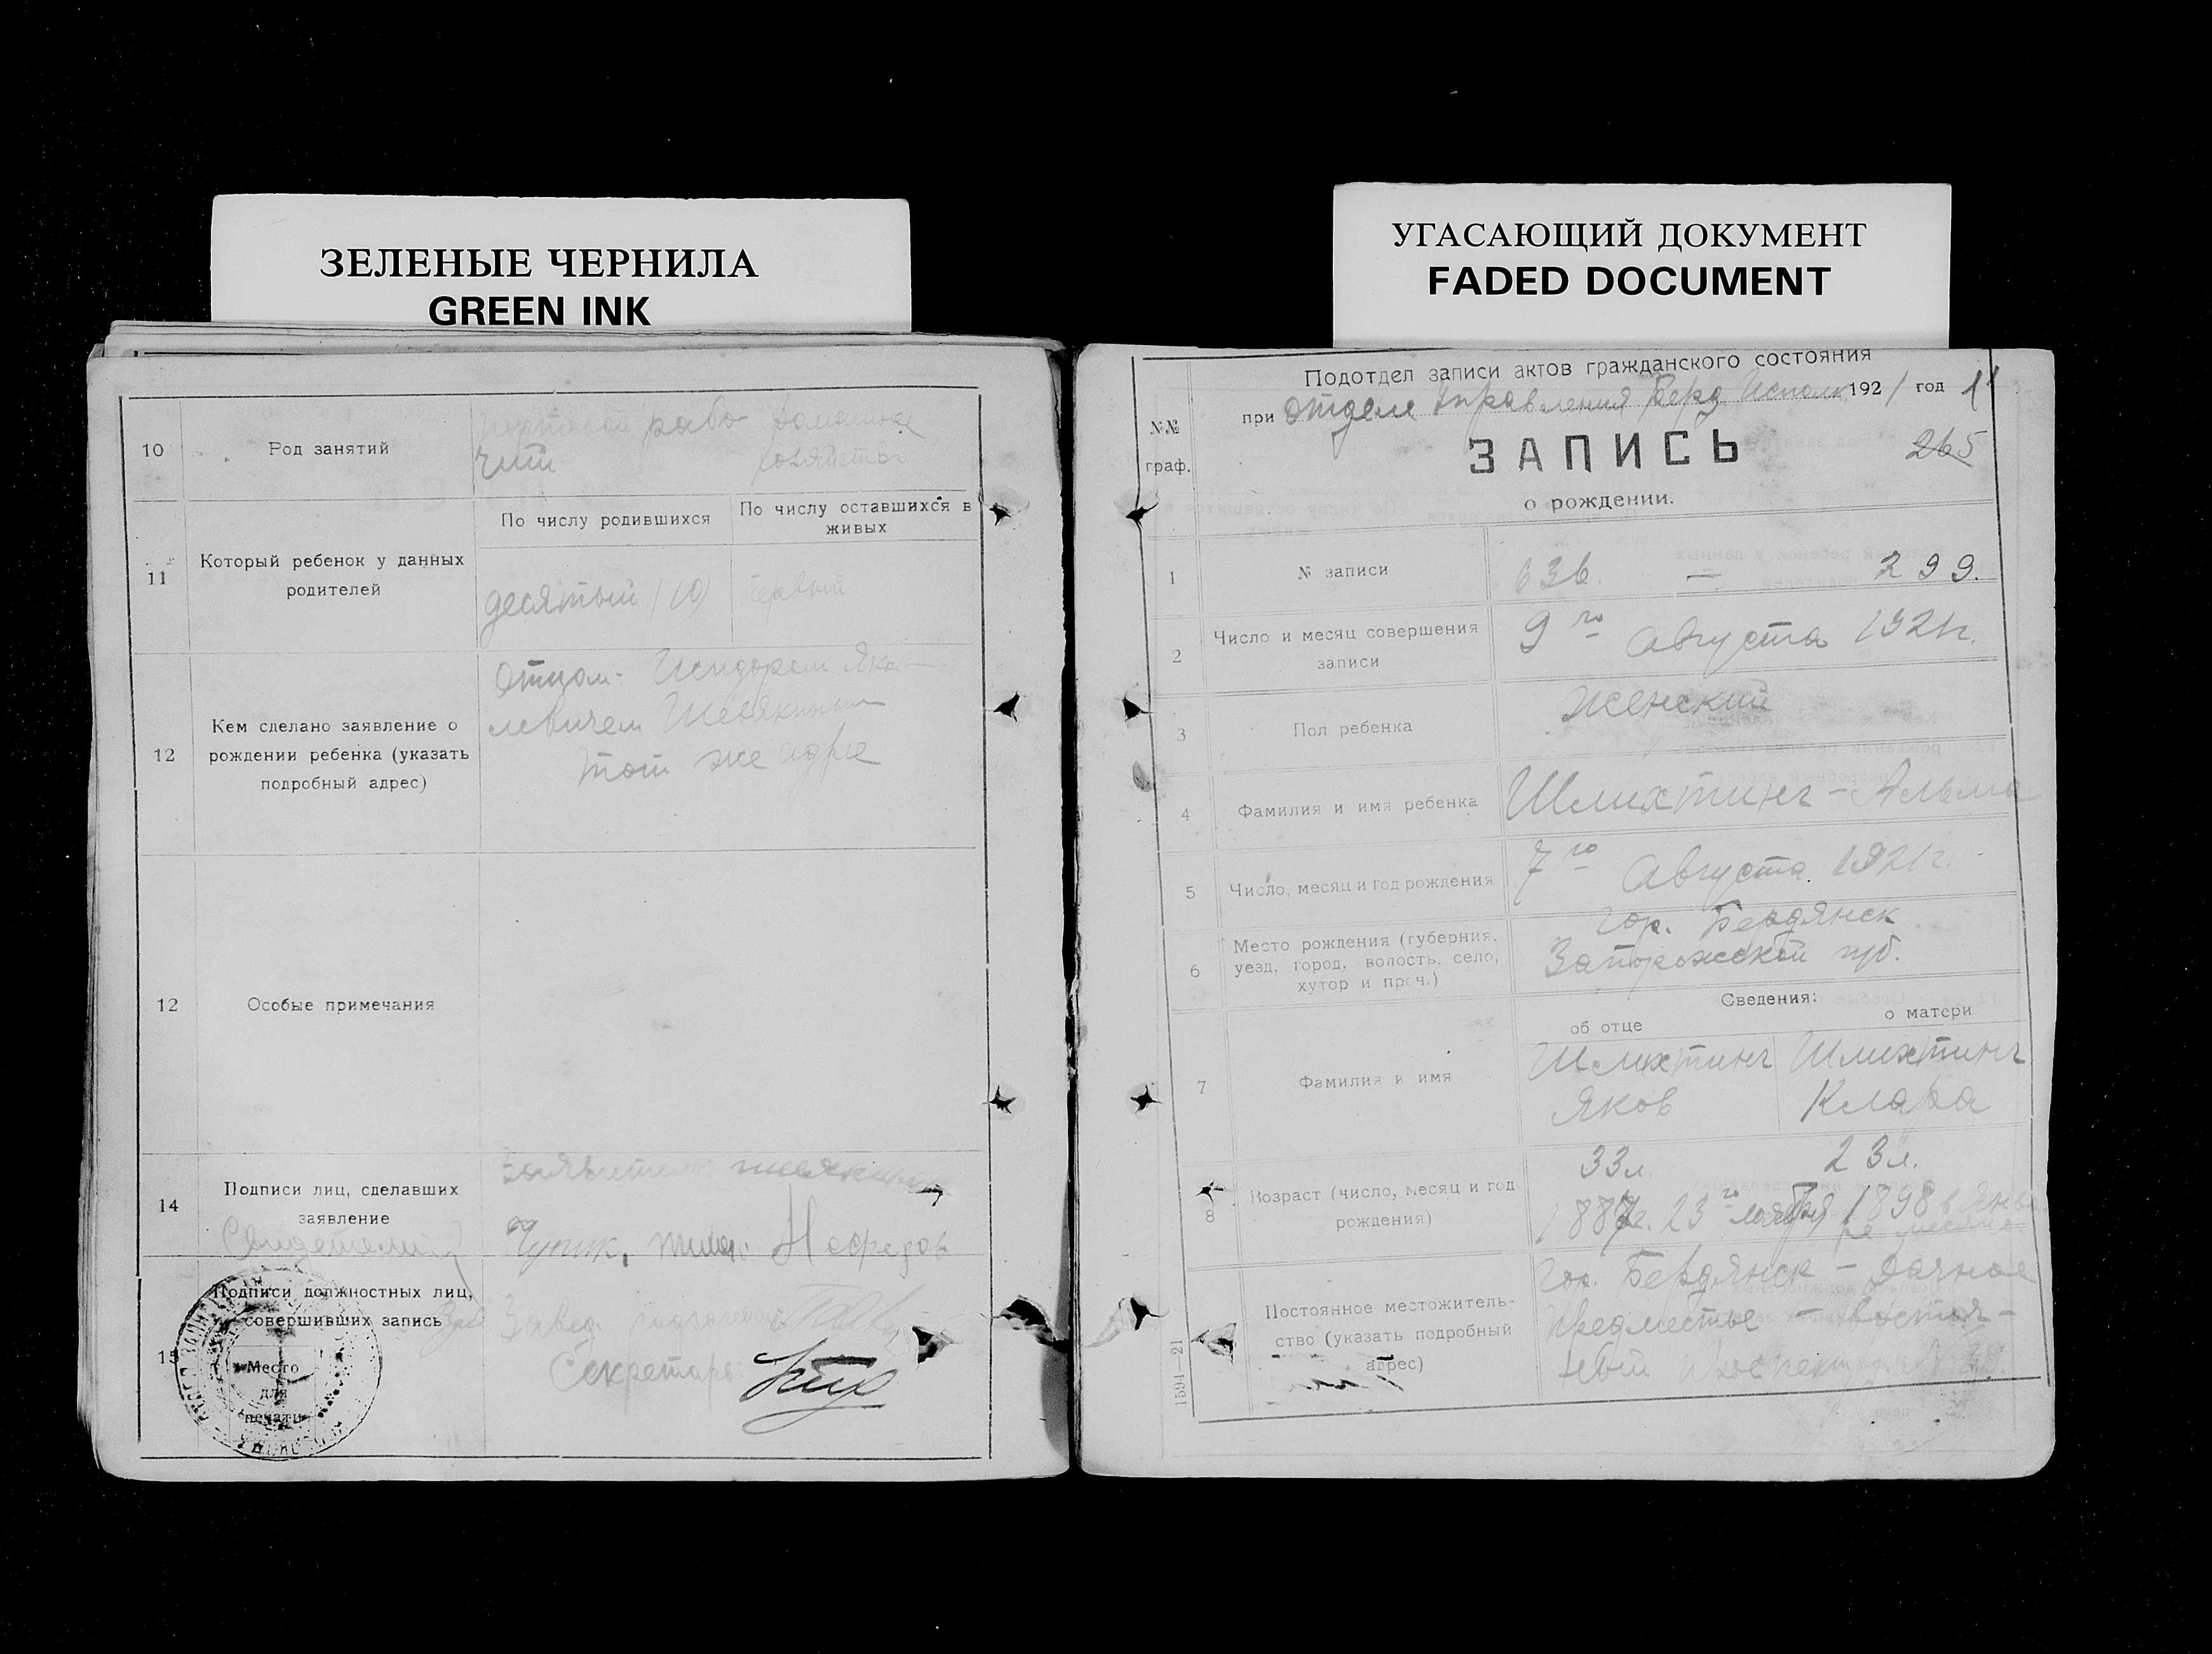 ЗЕЛЕНЫЕ ЧЕРНИЛА
GREEN INK
10
Род занятий
портовой рабо
чий
домашнее
хозяйство
11
Который ребенок у данных
родителей
По числу родившихся
По числу оставшихся в
живых
десятый (10)
первый
12
Кем сделано заявление о
рождении ребенка (указать
подробный адрес)
Отцом - Исидором Яков
левичем
Тот же адрес
12
Особые примечания
14
Подписи лиц, сделавших
заявление
Свидетели
15
Подписи должностных лиц,
совершивших запись
Место
для
печати
Завед.
Секретарь
УГАСАЮЩИЙ ДОКУМЕНТ
FADED DOCUMENT
Подотдел записи актов гражданского состояния
при Отделе Управления Берд Исполк 1921 год
№№
граф.
ЗАПИСЬ
265
о рождении.
1
№ записи
636. — 299.
2
Число и месяц совершения
записи
9го Августа 1921г.
3
Пол ребенка
Женский
4
Фамилия и имя ребенка
Шлихтинг - Альма
5
Число, месяц и год рождения
7го Августа 1921г.
6
Место рождения (губерния,
уезд, город, волость, село,
хутор и проч.)
гор. Бердянск
Запорожской губ.
Сведения:
об отце
о матери
7
Фамилия и имя
Шлихтинг
Яков
Шлихтинг
Клара
8
Возраст (число, месяц и год
рождения)
33л.
23л.
1887г. 23го ноября
1898 в Янва
ре месяце
Постоянное местожитель-
ство (указать подробный
адрес)
Гор. Бердянск - Дачное
предместье - восточ-
ный проспект
1594—21